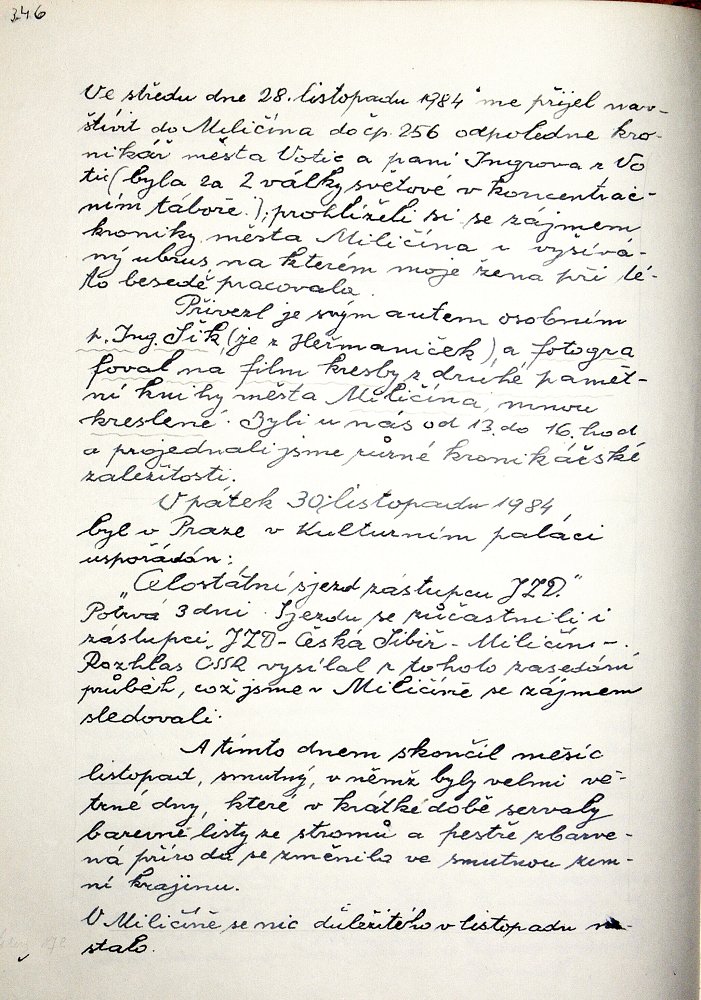 346
Ve středu dne 28. listopadu 1984 mě přijel nav-
štívit do Miličína do čp. 256 odpoledne kro-
nikář města Votic a paní Ingrova z Vo
tic (byla za 2 války světové v koncentrač-
ním táboře.), prohlíželi si se zájmem
kroniky města Miličína i vyšívá-
ný ubrus, na kterém moje žena při té-
to besedě pracovala.
Přivezl je svým autem osobním
p. Ing. Šik (je z Heřmaniček), a fotogra
foval na film kresby z druhé pamět-
ní knihy města Miličína, mnou
kreslené. Byli u nás od 13. do 16. hod
a projednali jsme různé kronikářské
zaležitosti.
V pátek 30. listopadu 1984
byl v Praze v Kulturním paláci
uspořádán:
„Celostátní sjezd zástupcu JZD."
Potrvá 3 dni. Sjezdu se zůčastnili i
zástupci „JZD - Česká Sibiř - Miličín -.
Rozhlas ČSSR vysílal z tohoto zasedání
průběh, což jsme v Miličíně se zájmem
sledovali.
A tímto dnem skončil měsíc
listopad, smutný, v němž byly velmi vě-
trné dny, které v krátké době servaly
barevné listy ze stromů a pestře zbarve-
ná příroda se změnila ve smutnou zim-
ní krajinu.
V Miličíně se nic důležitého v listopadu ne-
stalo.